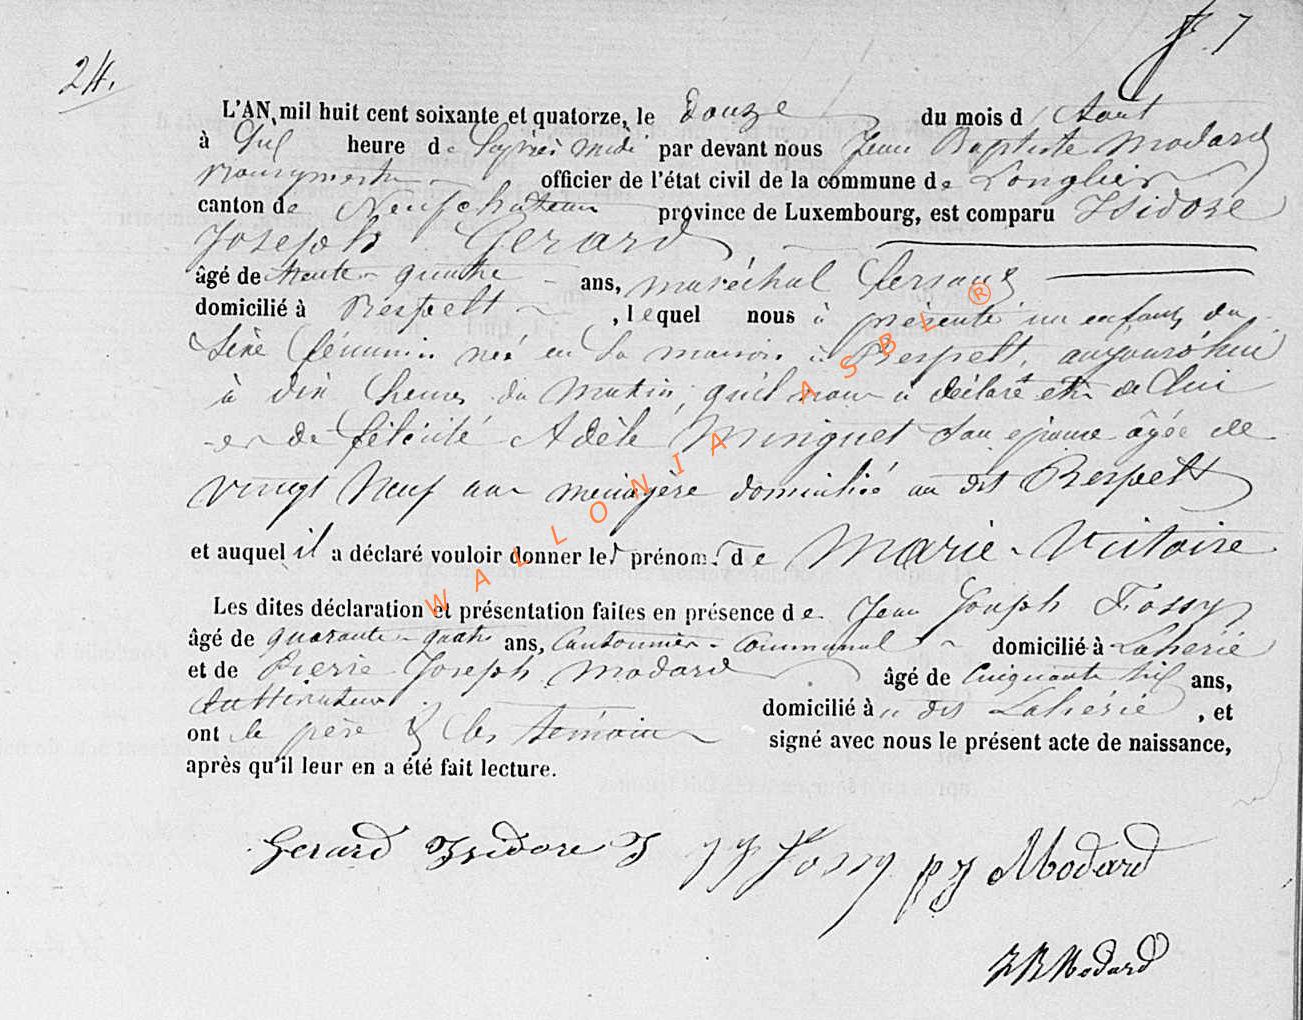 24.
f. 7
L'AN mil huit cent soixante et quatorze, le douze du mois d'Aout
à Six heure de l'après midi par devant nous Jean Baptiste Modard
Bourgmestre officier de l'état civil de la commune de Longlier
canton de Neufchâteau province de Luxembourg, est comparu Isidore
Joseph Gerard
âgé de trente quatre ans, maréchal ferrant
domicilié à Respelt, lequel nous a présenté un enfant du
Sexe féminin né en sa maison à Respelt, aujourd'hui
à dix heures du matin, qu'il nous a déclaré être de lui
et de félicité Adèle Minguet son épouse âgée de
vingt Neuf ans menagère domiciliée au dit Respelt
et auquel il a déclaré vouloir donner les prénoms de Marie Victoire
Les dites déclaration et présentation faites en présence de Jean Joseph Fossy
âgé de quarante quatre ans, Cantonnier communal domicilié à Laherie
et de Pierre Joseph Modard âgé de Cinquante six ans,
Cultivateur domicilié à u dit Laherie, et
ont le père & les témoins signé avec nous le présent acte de naissance,
après qu'il leur en a été fait lecture.
Gerard Isidore J JJ Fossy PJ Modard
JB Modard
WALLONIA ASBL ®